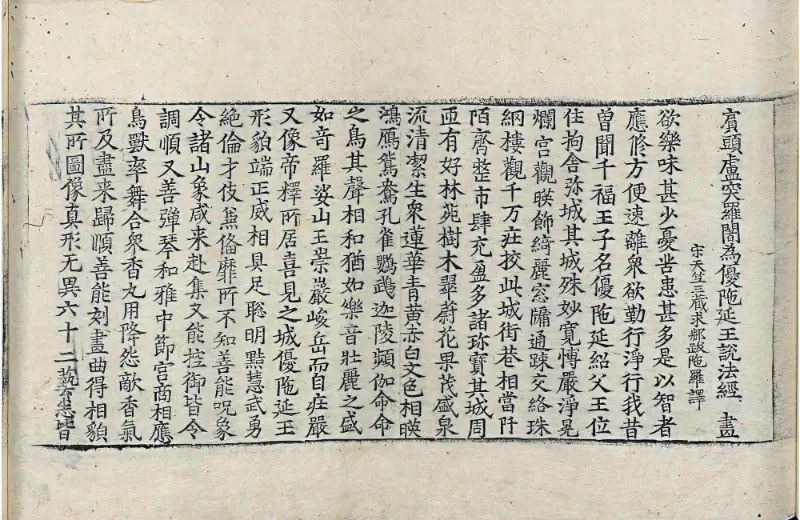 賓頭盧突羅闍為優陁延王說法經 晝
宋天竺三藏求那跋陁羅譯
欲樂味甚少憂苦患甚多是以智者
應修方便速離衆欲勤行淨行我昔
曾聞千福王子名優陁延紹父王位
住拘舍弥城其城殊妙寬博嚴淨晃
爛宮觀暎飾綺麗窓牖通踈交絡珠
網樓觀千万庄挍此城街巷相當阡
陌齊整市肆充盈多諸珎寶其城周
匝有好林菀樹木翠蔚花果茂盛泉
流清潔生衆蓮華青黃赤白文色相暎
鴻鴈鴛鴦孔雀鸚鵡迦陵頻伽命命
之鳥其聲相和猶如樂音壯麗之盛
如奇羅娑山王崇巖峻岳而自庄嚴
又像帝釋所居喜見之城優陁延王
形貌端正威相具足聡明黠慧武勇
絶倫才伎兼俻靡所不知善能呪象
令諸山象咸来赴集又能控御皆令
調順又善彈琴和雅中節宮商相應
鳥獸率舞合衆香丸用降怨敵香氣
所及盡来歸順善能刻畫曲得相貌
其所圖像真形无異六十二藝悉皆